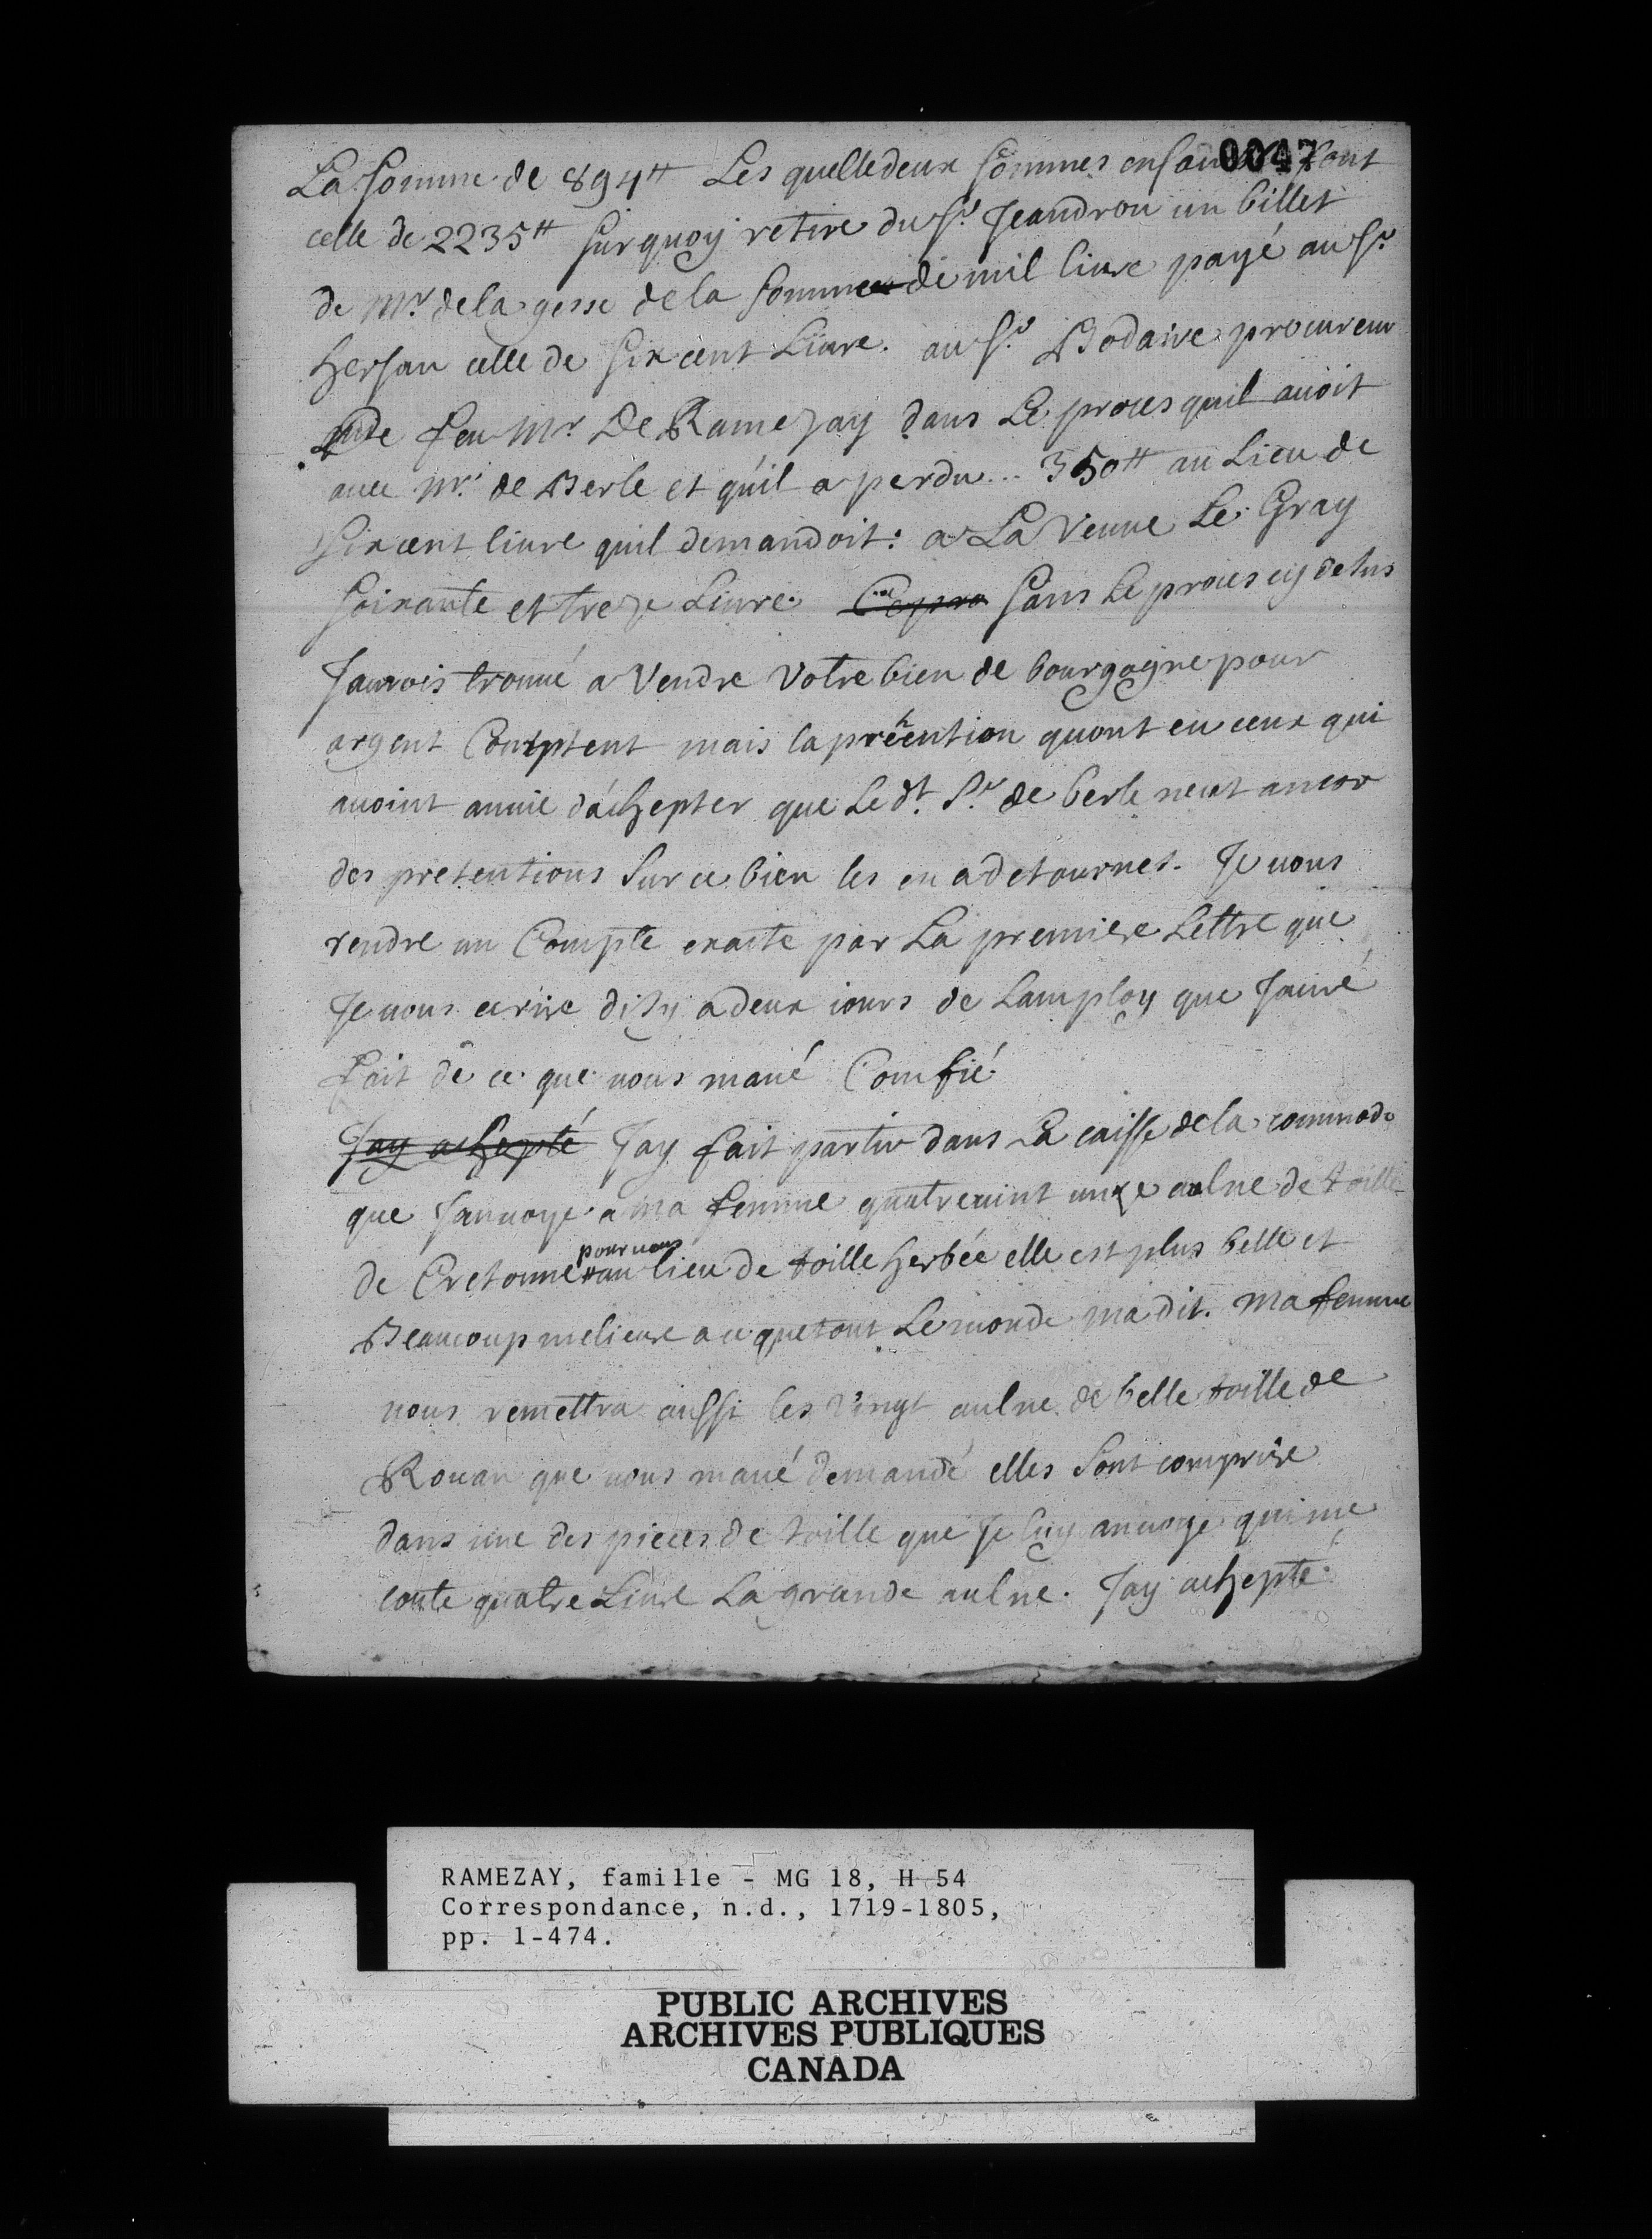 0047
La somme de 894tt Les quelle deux sommes font
celle de 2235tt surquoy retire du Sr. Jeandron un billet
de Mr. de la gesse de la somme de mil livre payé au Sr
hersan celle de six cent Livre. au Sr. Bodaire procureur
de feu Mr De Ramezay dans Le proces quil avoit
avec Mr. de Berle et qu'il a perdu... 350tt au Lieu de
six cent livre quil demandoit: a La Veuve Le Gray
soixante et treze Livre. Ce pro sans Le proces cy desus
Jaurois trouvé a Vendre Votre bien de bourgogne pour
argent Comptent mais la prévention quont eu ceux qui
avoint anvie d'achepter que Le dt. Sr de berle neut ancor
des pretentions sur ce bien les en a detournes. Je vous
rendre un Compte exacte par La premiere Lettre que
Je vous ecrire d'isy a deux iours de Lamploy que Jauré
fait de ce que vous mavé Comfié
Jay achepté Jay fait partir dans La caisse de la commode
que Janvoye a ma femme quatrevint unze aulne de toille
de Cretonne pour vous au lieu de toille herbée elle est plus belle et
Beaucoup melieure a ce que tout Le monde ma dit. Ma femme
vous remettra aussi les Vingt aulne de belle toille de
Rouan que vous mavé demandé elles sont comprise
dans une des pieces de toille que Je luy anvoye qui me
coute quatre Livre La grande aulne. Jay achepté
RAMEZAY, famille - MG 18, H 54
Correspondance, n.d., 1719-1805,
pp. 1-474.
PUBLIC ARCHIVES
ARCHIVES PUBLIQUES
CANADA